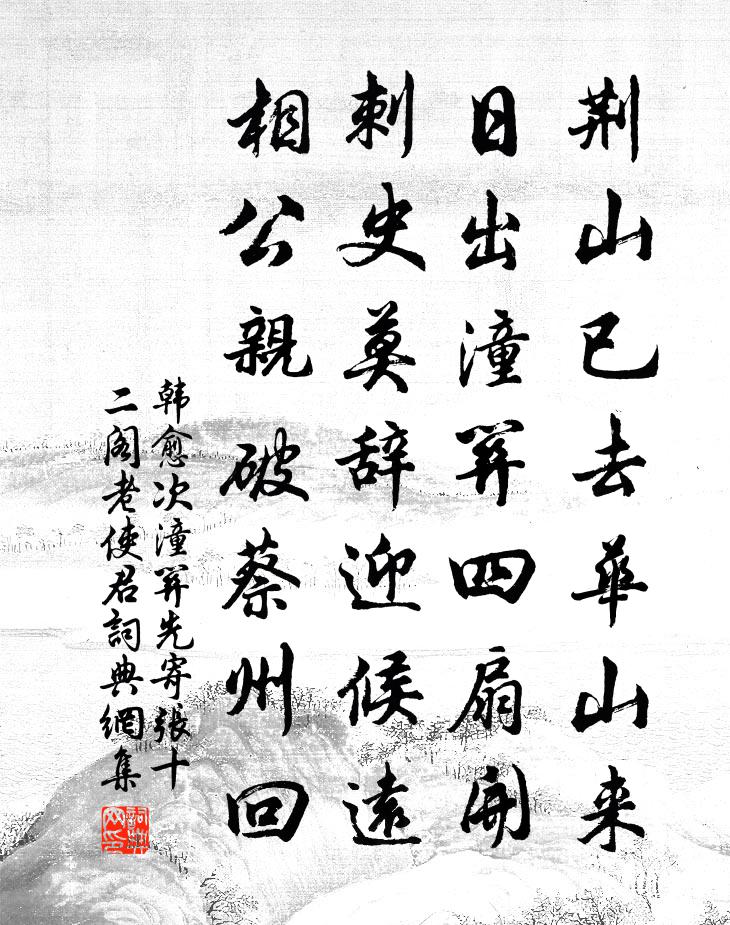 荆山已去華山来
日出潼関四扇開
刺史莫辞迎候遠
相公親破蔡州回
韩愈次潼関先寄張十
二阁老使君詞典網集